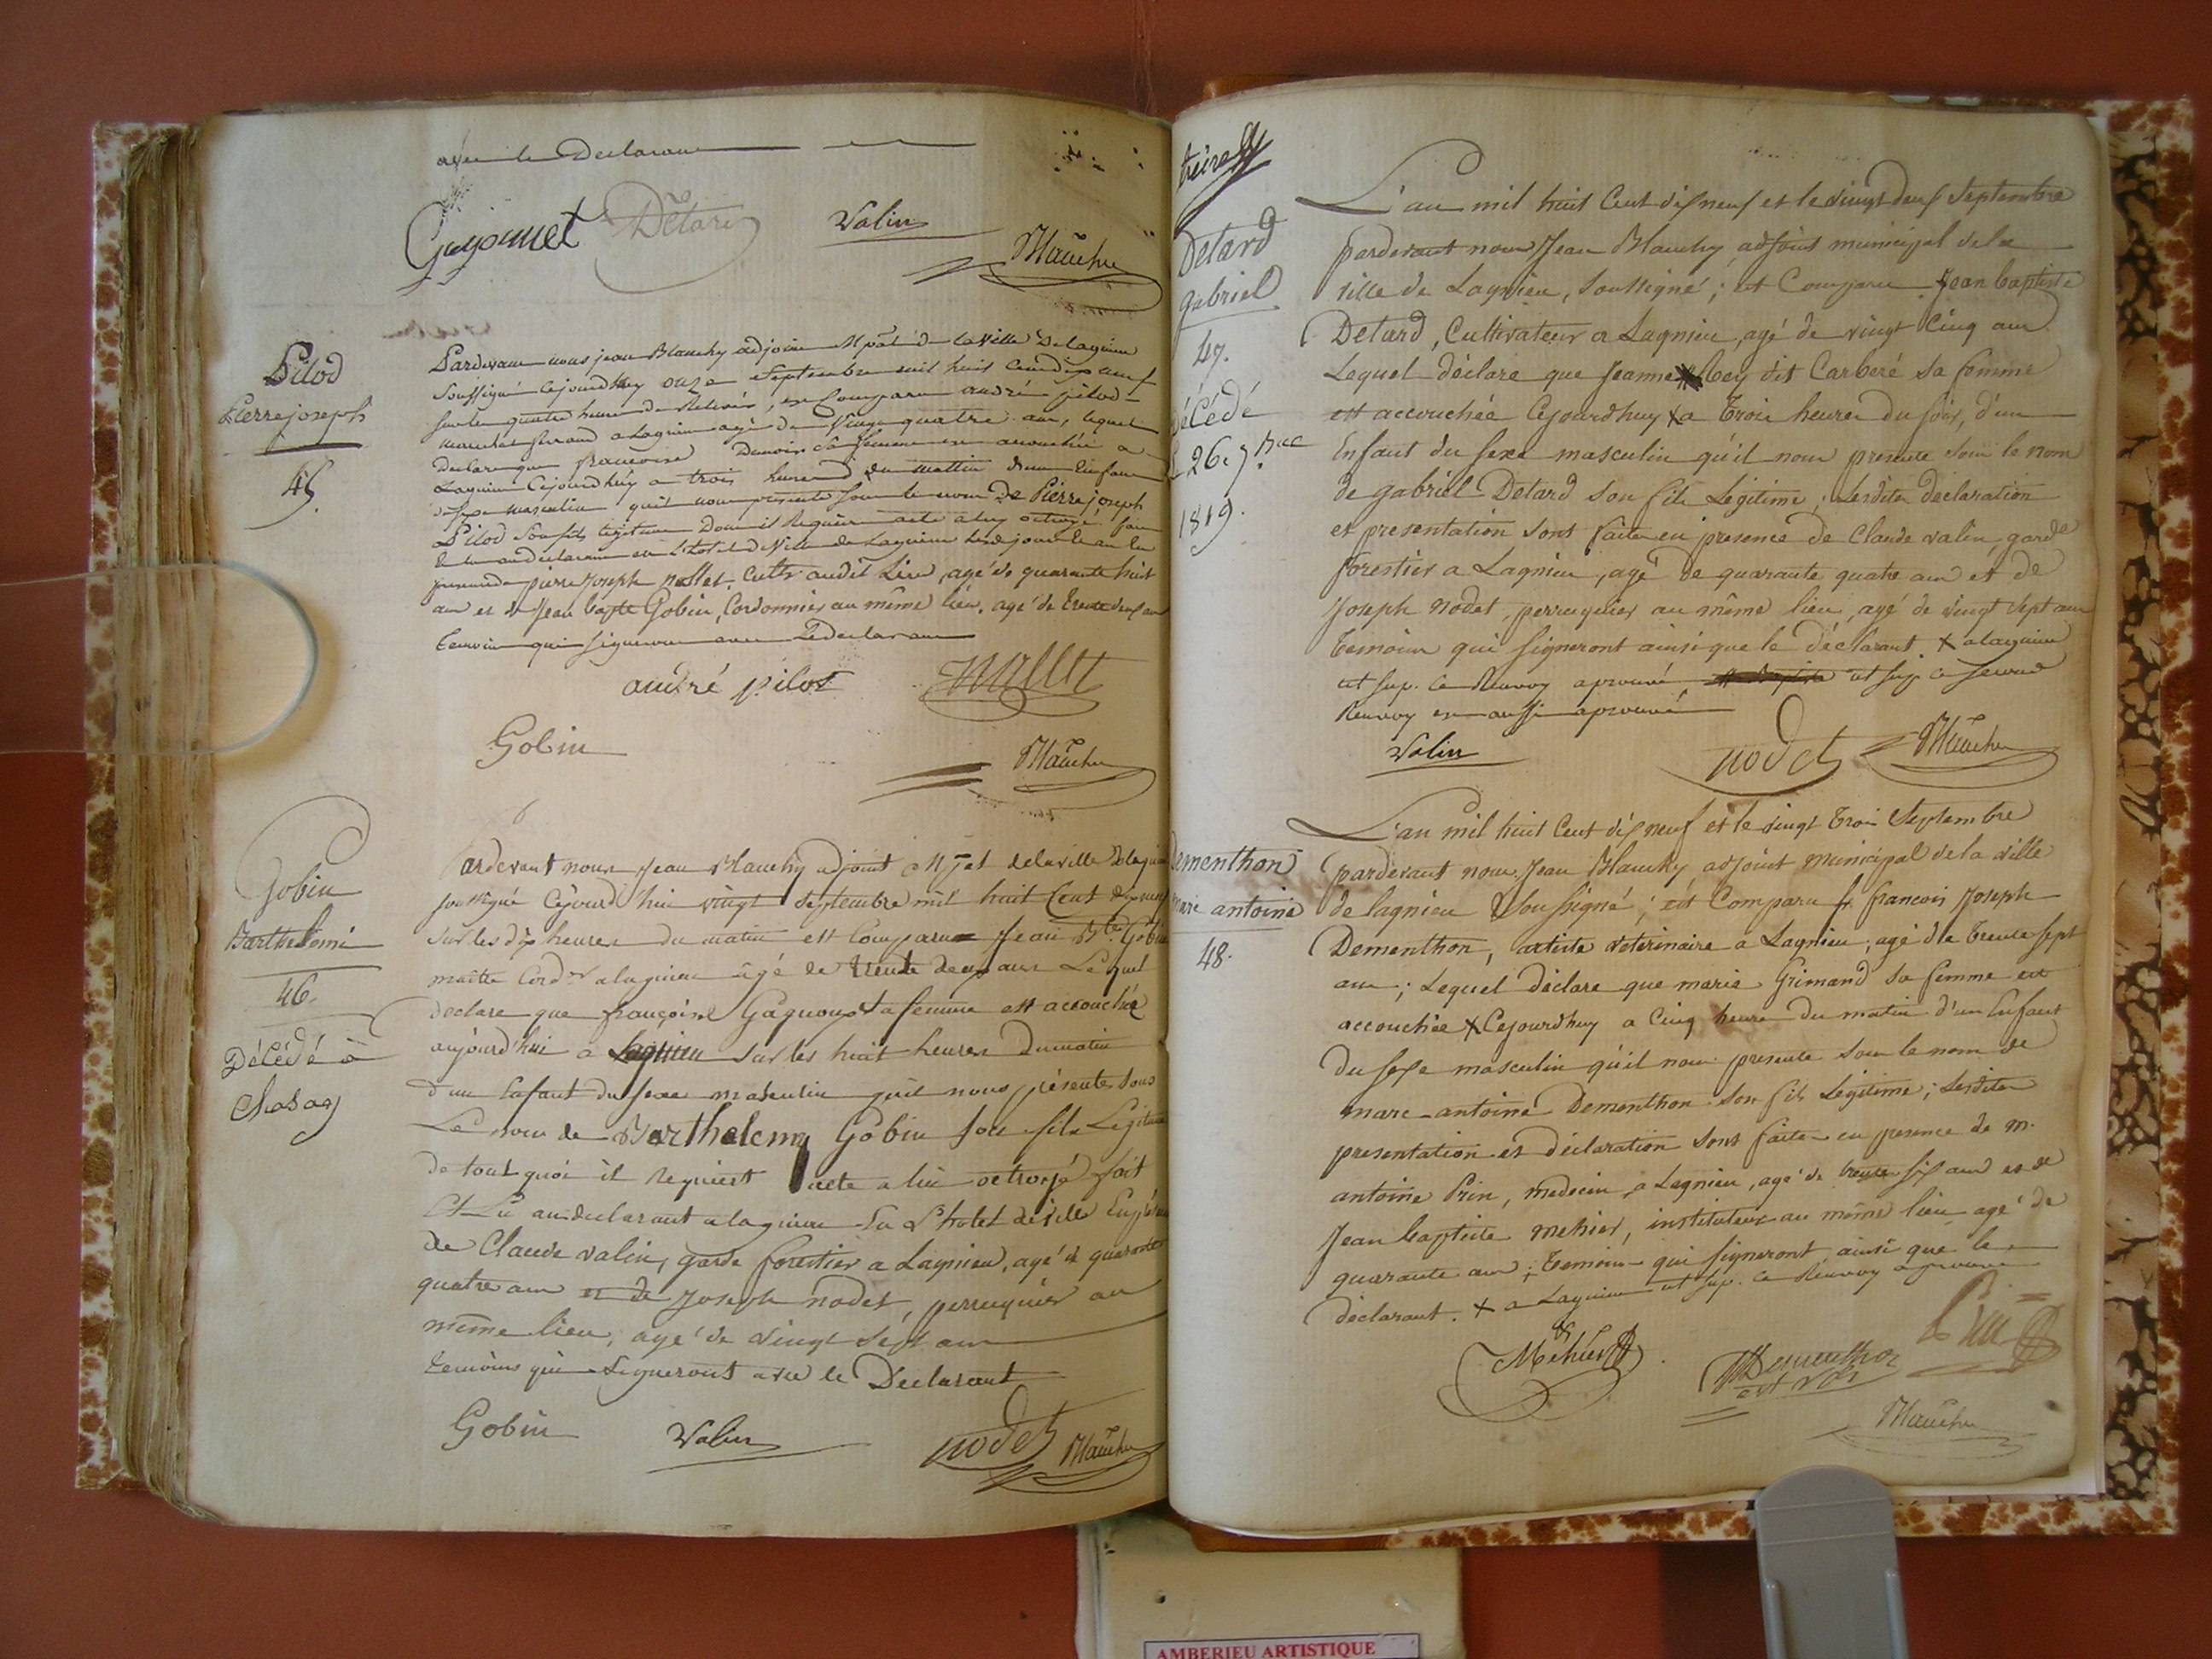 avec le Declarant
Guyonnet Détard Valin Blanchy
Pilod
Pierre joseph
45.
Pardevant nous jean Blanchy adjoint Mpal de la ville de lagnieu
soussigné Cejourdhuy onze Septembre mil huit Cent dix neuf
sur les quatre heures de Relevée, est Comparu andré pilod
a Lagnieu agé de Vingt quatre ans, lequel
Declare que Sa femme est accouchée a
Lagnieu Cejourdhuy a trois heures du mattin d'un Enfant
de sexe masculin qu'il nous presente sous le nom de Pierre joseph
Pilod son fils legitime Dont il Requier acte a luy octroyé, fait
et lu au declarant en L'hotel de Ville de Lagnieu Lesd jour et an En
presence de pierre Joseph nallet, Cultr audit Lieu, agé de quarante huit
ans et de Jean bapte Gobin, Cordonnier au même lieu, agé de trente deux ans
temoins qui signeront avec Le declarant
andré pilot Nallet
Gobin Blanchy
Gobin
Barthelomi
46.
Décédé à
Chasay
Pardevant nous Jean Blanchy adjoint Mpal de la ville de Lagnieu
soussigné Cejourd'hui vingt septembre mil huit Cent dix neuf
sur les dix heures du matin est Comparu Jean Bte Gobin
maitre Cordr a lagnieu âgé de trente deux ans Lequel
declare que françoise sa femme est accouchée
aujourd'hui a Lagnieu sur les huit heures du matin
d'un Enfant du sexe masculin qu'il nous présente sous
Le nom de Barthelemy Gobin son fils Legitime
de tout quoi il Requiert acte a lui octroyé fait
Et Lu au declarant a lagnieu En L'hotel de ville En présence
de Claude valin, garde forestier a Lagnieu, agé de quarante
quatre ans et de Joseph nodet, perruquier au
même lieu, agé de vingt sept ans
temoins qui signeront avec le Déclarant
Gobin Valin nodet Blanchy
Detard
gabriel
47.
décédé
L 26. 7bre
1819.
L'an mil huit Cent dix neuf et le vingt deux Septembre
pardevant nous Jean Blanchy adjoint municipal de la
ville de Lagnieu, soussigné; est Comparu Jean baptiste
Detard, Cultivateur a Lagnieu, agé de vingt Cinq ans
Lequel déclare que Jeanne Rey dit Carberé sa femme
est accouchée Cejourdhuy x a Trois heures du soir, d'un
Enfant du sexe masculin qu'il nous presente sous le nom
de gabriel Detard son fils Légitime; Lesdites declaration
et presentation sont faites en presence de Claude valin, garde
forestier a Lagnieu, agé de quarante quatre ans et de
Joseph nodet, perruquier au même lieu, agé de vingt sept ans
temoins qui signeront ainsi que le déclarant. x a lagnieu
ut sup. ce Renvoy aprouvé, ut sup ce second
Renvoy est aussi aprouvé
Valin nodet Blanchy
Dementhon
marc antoine
48.
L'an mil huit Cent dix neuf et le vingt Trois Septembre
pardevant nous Jean Blanchy adjoint municipal de la ville
de lagnieu soussigné; est Comparu f. françois Joseph
Dementhon, artiste vétérinaire a Lagnieu, agé de trente sept
ans; Lequel déclare que marie Grimand sa femme est
accouchée x Cejourdhuy a Cinq heures du matin d'un Enfant
du sexe masculin qu'il nous presente sous le nom de
marc-antoine Dementhon son fils Légitime; Lesdites
presentation et déclaration sont faites en presence de m.
antoine Prin, medecin a Lagnieu, agé de trente six ans et de
Jean baptiste mehier, instituteur au même lieu agé de
quarante ans; temoins qui signeront ainsi que le
déclarant. x a Lagnieu ut sup. ce Renvoy aprouvé
Mehier Dementhon art vetr Prin
Blanchy
AMBERIEU ARTISTIQUE